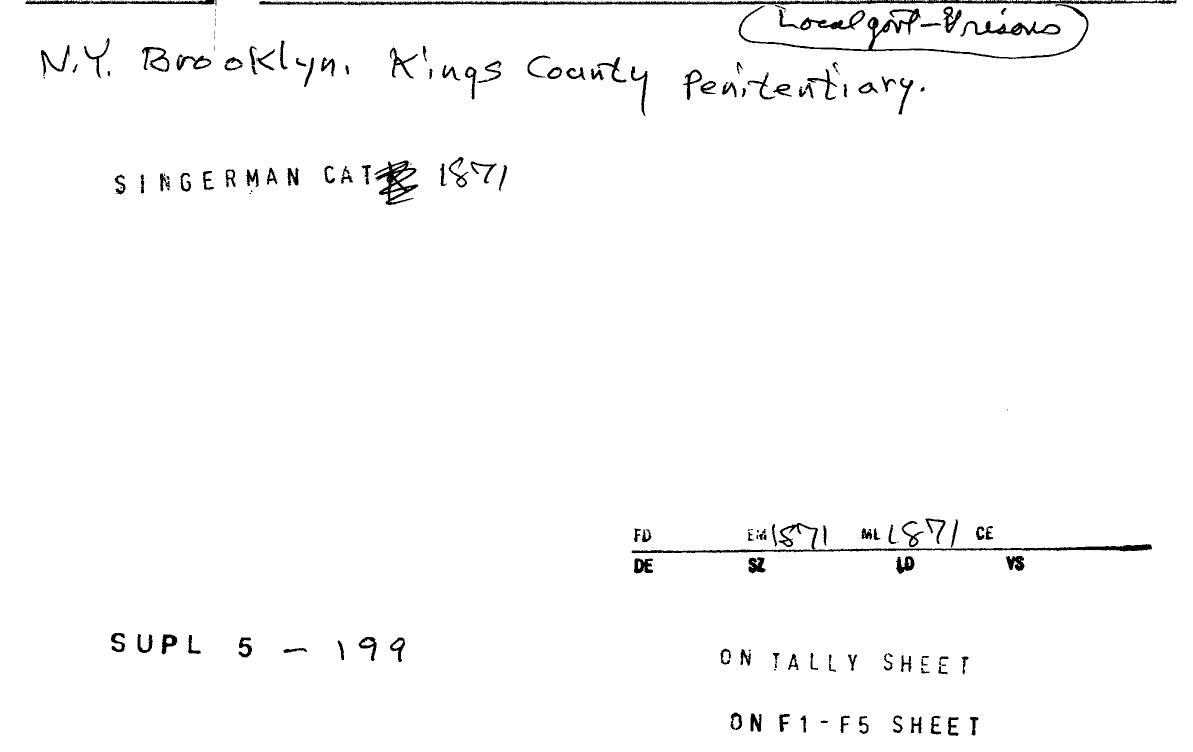 Local govt-Prisons
N.Y. Brooklyn. Kings County Penitentiary.
SINGERMAN CAT 1871
FD EM 1871 ML 1871 CE
DE SZ LD VS
SUPL 5 - 199
ON TALLY SHEET
ON F1-F5 SHEET